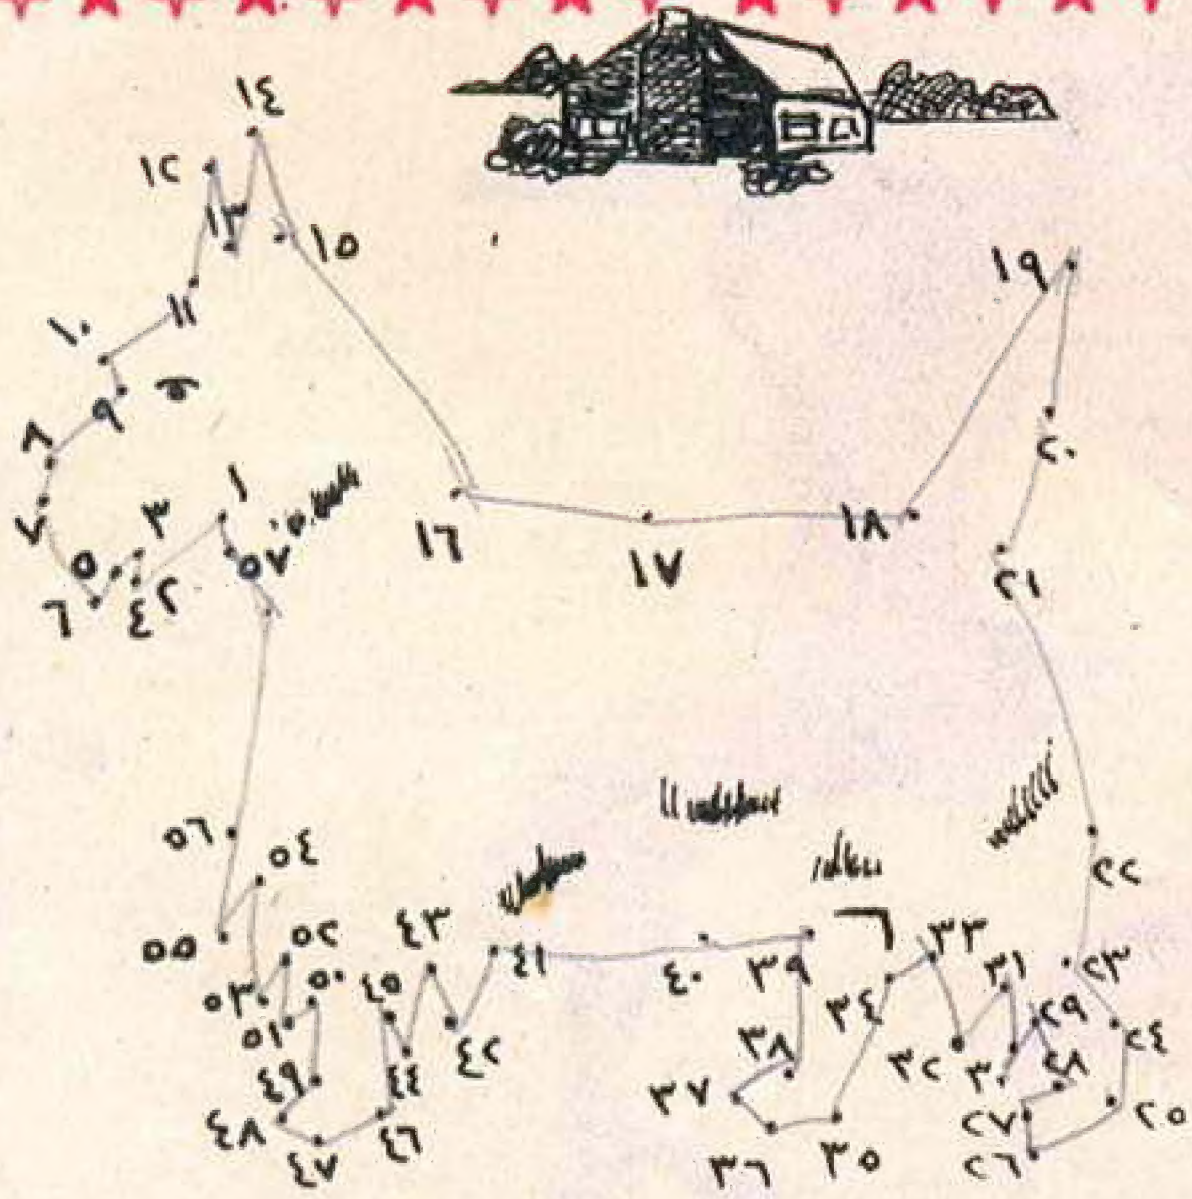 ١
٢
٣
٤
٥
٦
٧
٨
٩
١٠
١١
١٢
١٣
١٤
١٥
١٦
١٧
١٨
١٩
٢٠
٢١
٢٢
٢٣
٢٤
٢٥
٢٦
٢٧
٢٨
٢٩
٣٠
٣١
٣٢
٣٣
٣٤
٣٥
٣٦
٣٧
٣٨
٣٩
٤٠
٤١
٤٢
٤٣
٤٤
٤٥
٤٦
٤٧
٤٨
٤٩
٥٠
٥١
٥٢
٥٣
٥٤
٥٥
٥٦
٥٧